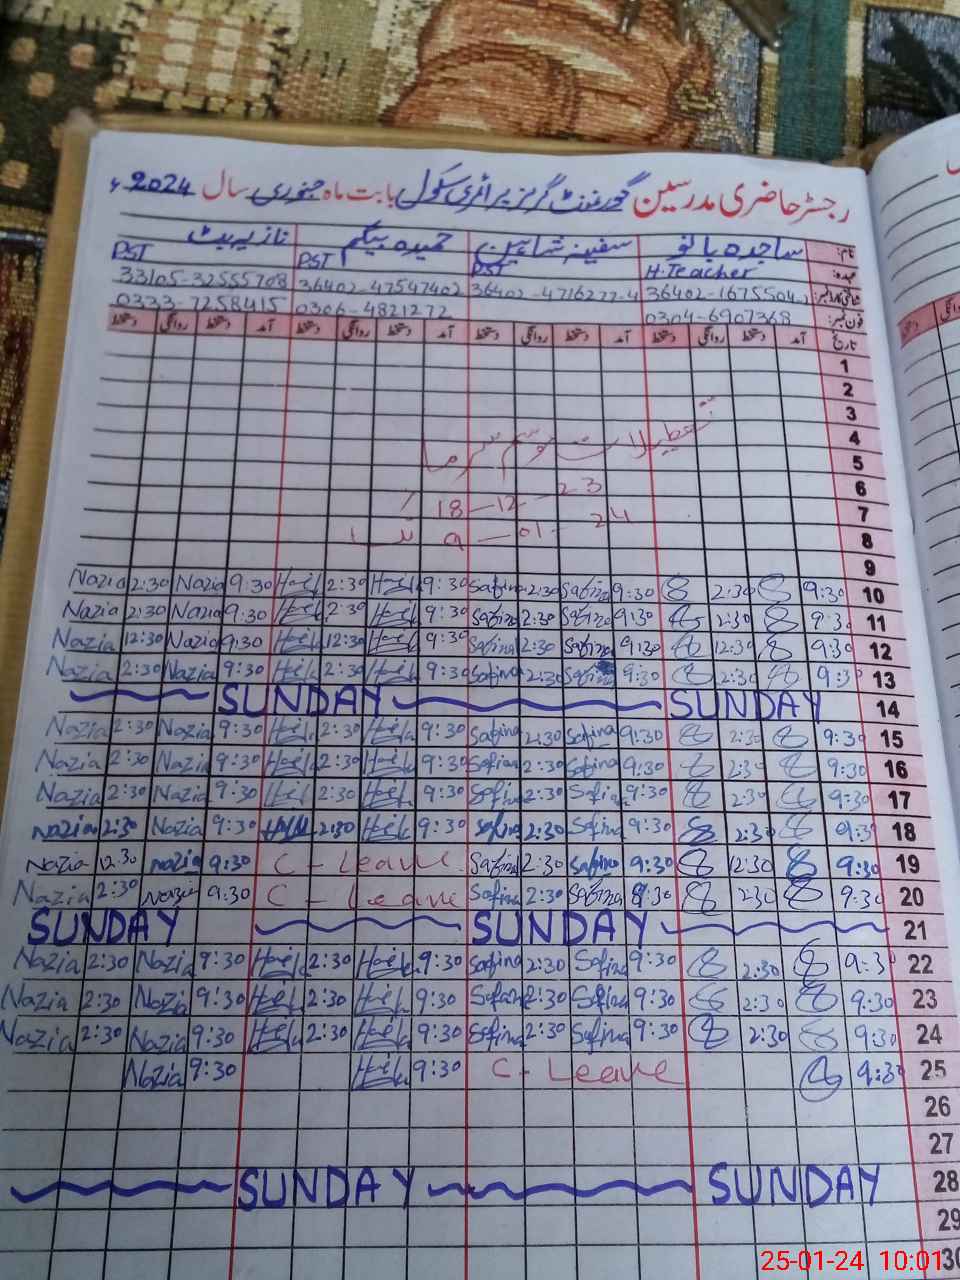 رجسٹر حاضری مدرسین گورنمنٹ گرلز پرائمری سکول بابت ماہ جنوری سال 2024ء
نام: ساجدہ بانو سفینہ شاہین حمیدہ بیگم نازیہ بٹ
عہدہ: H.Teacher PST PST PST
شناختی کارڈ نمبر: 36402-1675504-2 36402-4716277-4 36402-47547402 33105-32555708
فون نمبر: 0304-6907368 0306-4821272 0333-7258415
تاریخ آمد دستخط روانگی دستخط آمد دستخط روانگی دستخط آمد دستخط روانگی دستخط آمد دستخط روانگی دستخط
1
2
3
تعطیلات موسم سرما
4
5
6
18-12-23
7
9-01-24
8
9
Nazia 2:30 Nazia 9:30 2:30 9:30 Safina 2:30 Safina 9:30 2:30 9:30 10
Nazia 2:30 Nazia 9:30 2:30 9:30 Safina 2:30 Safina 9:30 2:30 9:30 11
Nazia 12:30 Nazia 9:30 12:30 9:30 Safina 2:30 Safina 9:30 12:30 9:30 12
Nazia 2:30 Nazia 9:30 2:30 9:30 Safina 2:30 Safina 9:30 2:30 9:30 13
SUNDAY SUNDAY 14
Nazia 2:30 Nazia 9:30 2:30 9:30 Safina 2:30 Safina 9:30 2:30 9:30 15
Nazia 2:30 Nazia 9:30 2:30 9:30 Safina 2:30 Safina 9:30 2:30 9:30 16
Nazia 2:30 Nazia 9:30 2:30 9:30 Safina 2:30 Safina 9:30 2:30 9:30 17
Nazia 2:30 Nazia 9:30 2:30 9:30 Safina 2:30 Safina 9:30 2:30 9:30 18
Nazia 12:30 Nazia 9:30 C - Leave Safina 2:30 Safina 9:30 12:30 9:30 19
Nazia 2:30 Nazia 9:30 C - Leave Safina 2:30 Safina 9:30 2:30 9:30 20
SUNDAY SUNDAY 21
Nazia 2:30 Nazia 9:30 2:30 9:30 Safina 2:30 Safina 9:30 2:30 9:30 22
Nazia 2:30 Nazia 9:30 2:30 9:30 Safina 2:30 Safina 9:30 2:30 9:30 23
Nazia 2:30 Nazia 9:30 2:30 9:30 Safina 2:30 Safina 9:30 2:30 9:30 24
Nazia 9:30 9:30 C - Leave 9:30 25
26
27
SUNDAY SUNDAY 28
29
30
25-01-24 10:01